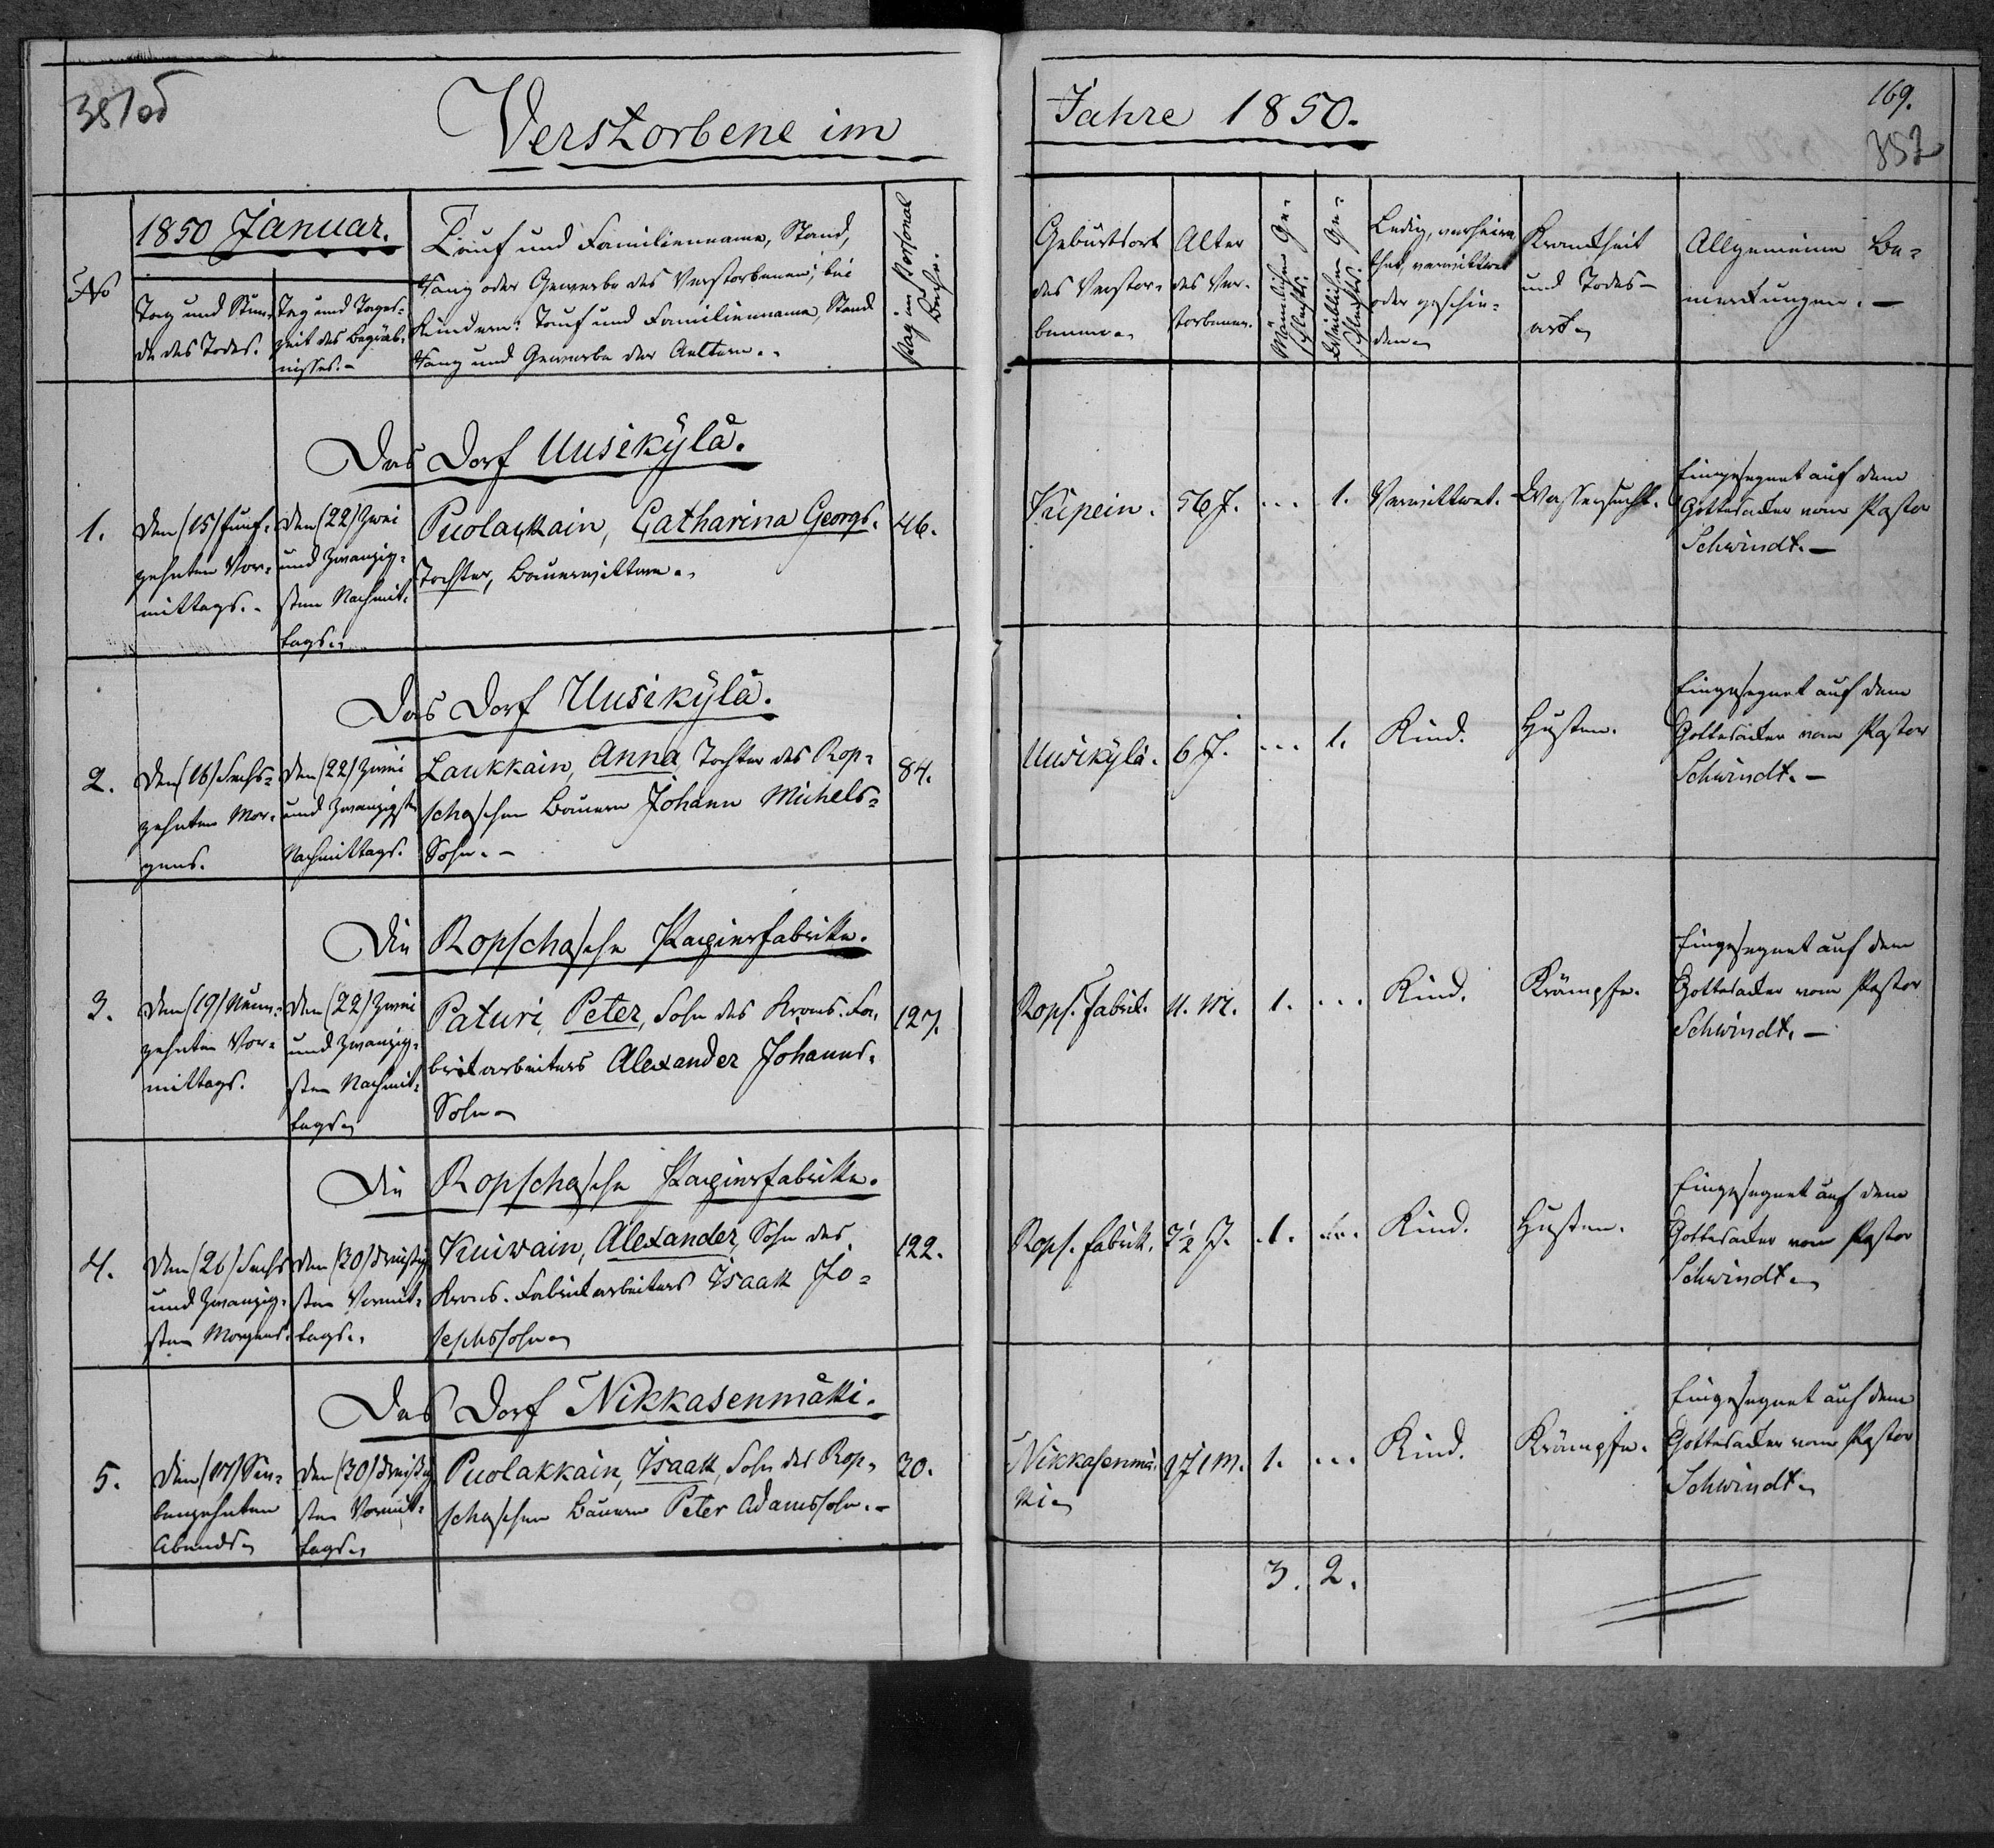 Verstorbene im
Jahre 1850.
169.
352
No
1850 Januar.
Tag und Stun-
de des Todes.
Tag und Tages-
zeit des Begräb-
nisses.-
Tauf und Familienname, Stand,
Rang oder Gewerbe des Verstorbenen; bei
Kindern: Tauf und Familienname, Stand
Rang und Gewerbe der Aeltern.
Pag im Personal
Buche.
Geburtsort
des Verstor-
benen.
Alter
des Ver-
storbenen.
Männlichen Ge-
schlechts.
Weiblichen Ge-
schlechts.
Ledig, verheira
thet, verwittwet
oder geschie-
den.
Krankheit
und Todes-
art.
Allgemeine Be-
merkungen.-
Das Dorf Uusikylä.
1.
den (15) fünf-
zehnten Vor-
mittags.-
den (22) zwei
und zwanzig-
sten Nachmit-
tags.
Puolakkain, Catharina Georgs-
Tochter, Bauerwittwe.
46.
Kipein.
56 J.
...
1.
Verwittwet.
Wassersucht.
Eingesegnet auf dem
Gottesacker vom Pastor
Schwindt.-
Das Dorf Uusikylä.
2.
den (16) sechs-
zehnten Mor-
gens.
den (22) zwei
und zwanzigsten
Nachmittags.
Laukkain, Anna, Tochter des Rop-
schaschen Bauern Johann Michels-
Sohn.-
84.
Uusikylä.
6 J.
...
1.
Kind.
Husten.
Eingesegnet auf dem
Gottesacker vom Pastor
Schwindt.-
Die Ropschasche Papierfabrike.
3.
den (19) neun-
zehnten Vor-
mittags.
den (22) zwei
und zwanzig-
sten Nachmit-
tags.
Paturi, Peter, Sohn des Krons-Fa-
brikarbeiters Alexander Johanns-
Sohn.
127.
Rops. Fabrik.
11. M.
1.
...
Kind.
Krämpfe.
Eingesegnet auf dem
Gottesacker vom Pastor
Schwindt.-
Die Ropschasche Papierfabrike.
4.
den (26) sechs
und zwanzig-
sten Morgens.
den (30) dreißig
sten Vormit-
tags.
Kuiwain, Alexander, Sohn des
Krons-Fabrikarbeiters Isaak Jo-
sephssohn.
122.
Rops. Fabrik.
2½ J.
1.
...
Kind.
Husten.
Eingesegnet auf dem
Gottesacker vom Pastor
Schwindt.
Das Dorf Nikkasenmäki.
5.
den (17) sie-
benzehnten
Abends.
den (30) dreißig
sten Vormit-
tags.
Puolakkain, Isaak, Sohn des Rop-
schaschen Bauern Peter Adamssohn.-
30.
Nikkasenmä-
ki.
1 J 1 M.
1.
...
Kind.
Krämpfe.
Eingesegnet auf dem
Gottesacker vom Pastor
Schwindt.
3.
2.